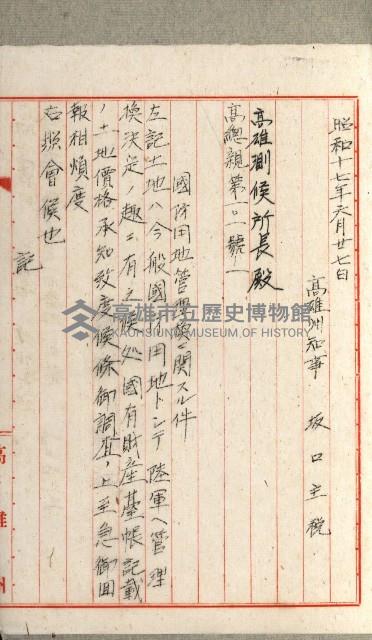 昭和十七年六月廿七日
高雄州知事 坂口主税
高雄測候所長殿
高總親第一〇一號ノ一
國防用地管理換ニ關スル件
左記土地ハ今般國防用地トシテ陸軍ヘ管理
換決定ノ趣ニ有之候処國有財産臺帳記載
ノ土地價格承知致度候條御調査ノ上至急御回
報相煩度
右照會候也
記
高雄州
高雄市立歷史博物館
KAOHSIUNG MUSEUM OF HISTORY